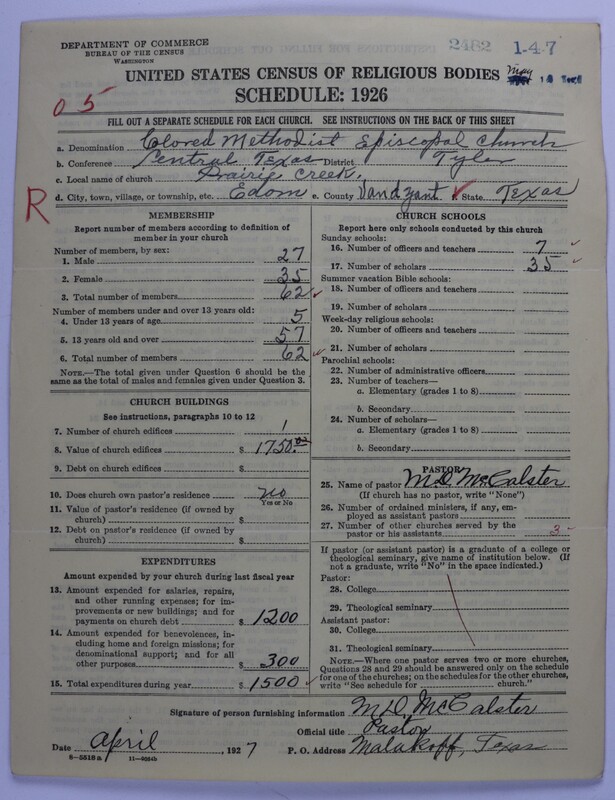 DEPARTMENT OF COMMERCE
BUREAU OF THE CENSUS
WASHINGTON
2482
1-4-7
UNITED STATES CENSUS OF RELIGIOUS BODIES
May
SCHEDULE: 1926
05
FILL OUT A SEPARATE SCHEDULE FOR EACH CHURCH. SEE INSTRUCTIONS ON THE BACK OF THIS SHEET
a. Denomination Colored Methodist Episcopal Church
b. Conference Central Texas District Tyler
c. Local name of church Prairie Creek.
R
d. City, town, village, or township, etc. Edom e. County Vandzant f. State Texas
MEMBERSHIP
Report number of members according to definition of member in your church
Number of members, by sex:
1. Male 27
2. Female 35
3. Total number of members 62
Number of members under and over 13 years old:
4. Under 13 years of age 5
5. 13 years old and over 57
6. Total number of members 62
NOTE.—The total given under Question 6 should be
same as the total of males and females given under Question 3.
CHURCH BUILDINGS
See instructions, paragraphs 10 to 12
7. Number of church edifices 1
8. Value of church edifices $ 1750.00
9. Debt on church edifices $
10. Does church own pastor's residence no
Yes or No
11. Value of pastor's residence (if owned by
church) $
12. Debt on pastor's residence (if owned by
church) $
EXPENDITURES
Amount expended by your church during last fiscal year
13. Amount expended for salaries, repairs,
and other running expenses; for im-
provements or new buildings; and for
payments on church debt $ 1200
14. Amount expended for benevolences, in-
cluding home and foreign missions; for
denominational support; and for all
other purposes $ 300
15. Total expenditures during year $ 1500
CHURCH SCHOOLS
Report here only schools conducted by this church
Sunday schools:
16. Number of officers and teachers 7
17. Number of scholars 35
Summer vacation Bible schools:
18. Number of officers and teachers
19. Number of scholars
Week-day religious schools:
20. Number of officers and teachers
21. Number of scholars
Parochial schools:
22. Number of administrative officers
23. Number of teachers—
a. Elementary (grades 1 to 8)
b. Secondary
24. Number of scholars—
a. Elementary (grades 1 to 8)
b. Secondary
PASTOR
25. Name of pastor M.D. McCalster
(If church has no pastor, write "None")
26. Number of ordained ministers, if any, em-
ployed as assistant pastors
27. Number of other churches served by the
pastor or his assistants 3
If pastor (or assistant pastor) is a graduate of a college or
theological seminary, give name of institution below. (If
not a graduate, write "No" in the space indicated.)
Pastor:
28. College
29. Theological seminary
Assistant pastor:
30. College
31. Theological seminary
NOTE.—Where one pastor serves two or more churches,
Questions 28 and 29 should be answered only on the schedule
for one of the churches; on the schedules for the other churches,
write "See schedule for church."
Signature of person furnishing information M.D. McCalster
Official title Pastor
Date April, 1927 P. O. Address Malakoff, Texas